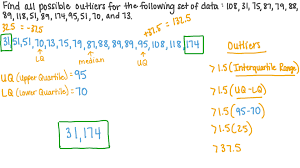 Find all possible outliers for the following set of data: 108, 31, 75, 87, 79, 88,
89, 118, 51, 89, 174, 95, 51, 70, and 73.
32.5 = -37.5
+37.5 = 132.5
31 51 51, 70, 73, 75, 79, 87, 88, 89, 89, 95, 108, 118, 174
LQ
median
UQ
UQ (Upper Quartile) = 95
LQ (Lower Quartile) = 70
31, 174
Outliers
> 1.5 (Interquartile Range)
> 1.5 (UQ - LQ)
> 1.5 (95 - 70)
> 1.5 (25)
> 37.5